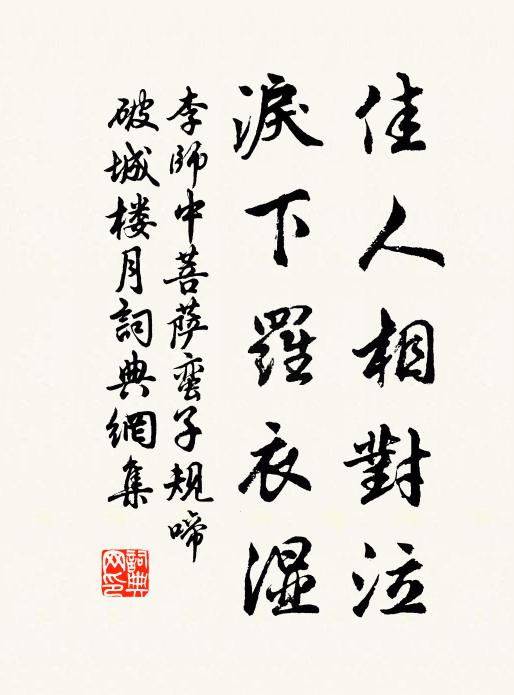 佳人相對泣
淚下羅衣濕
李師中菩薩蛮子規啼
破城楼月詞典網集
詞典
网印